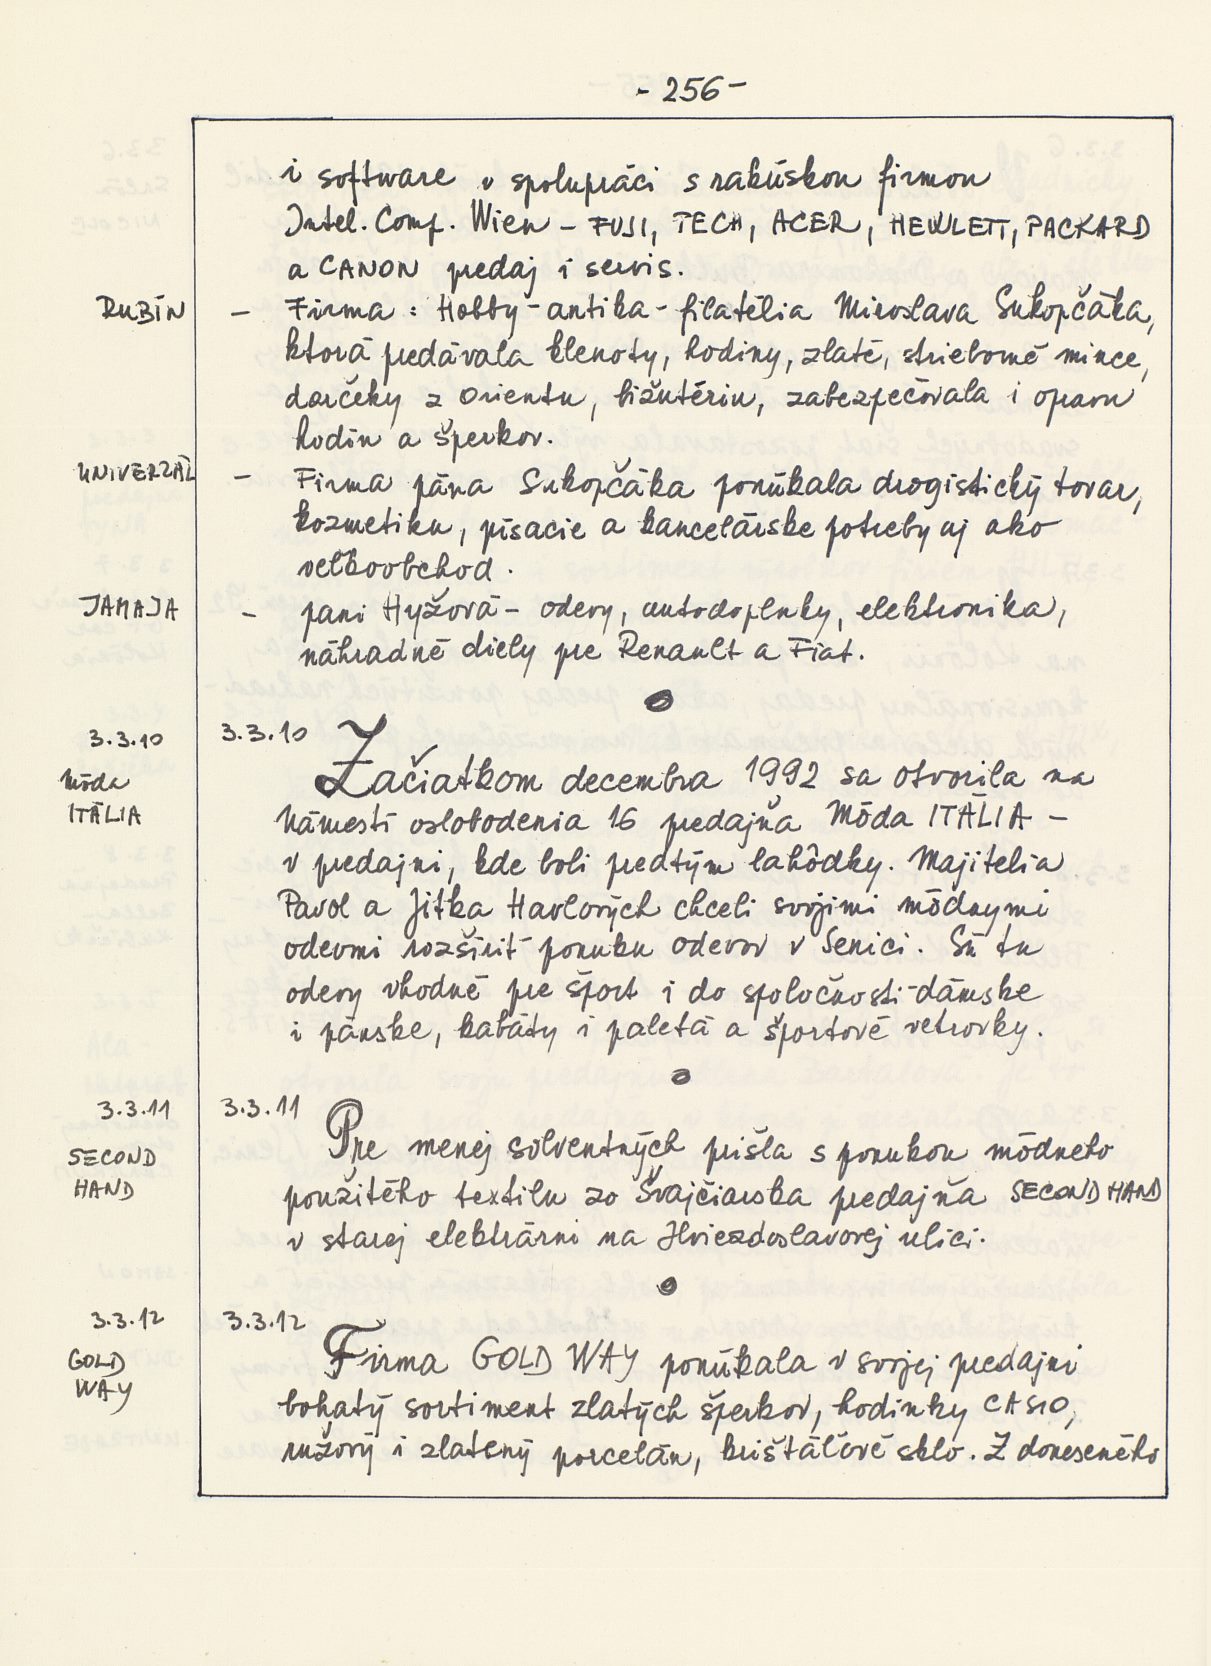 - 256 -
i software v spolupráci s rakúskou firmou
Intel. Comp. Wien - FUJI, TECH, ACER, HEWLETT, PACKARD
a CANON predaj i servis.
RUBÍN - Firma : Hobby - antika - filatélia Miroslava Sukopčáka,
ktorá predávala klenoty, hodiny, zlaté, strieborné mince,
darčeky z Orientu, bižutériu, zabezpečovala i opravu
hodín a šperkov.
UNIVERZÁL - Firma pána Sukopčáka ponúkala drogistický tovar,
kozmetiku, písacie a kancelárske potreby aj ako
veľkoobchod.
JAMAJA - pani Hyžová - odevy, autodoplnky, elektronika,
náhradné diely pre Renault a Fiat.
3.3.10 3.3.10
Móda Začiatkom decembra 1992 sa otvorila na
ITÁLIA Námestí oslobodenia 16 predajňa Móda ITÁLIA -
v predajni, kde boli predtým lahôdky. Majitelia
Pavol a Jitka Havlových chceli svojimi módnymi
odevmi rozšíriť ponuku odevov v Senici. Sú tu
odevy vhodné pre šport i do spoločnosti - dámske
i pánske, kabáty i paletá a športové vetrovky.
3.3.11 3.3.11
SECOND Pre menej solventných prišla s ponukou módneho
HAND použitého textilu zo Švajčiarska predajňa SECOND HAND
v starej elektrárni na Hviezdoslavovej ulici.
3.3.12 3.3.12
GOLD Firma GOLD WAY ponúkala v svojej predajni
WAY bohatý sortiment zlatých šperkov, hodinky CASIO,
ružový i zlatený porcelán, krištáľové sklo. Z doneseného